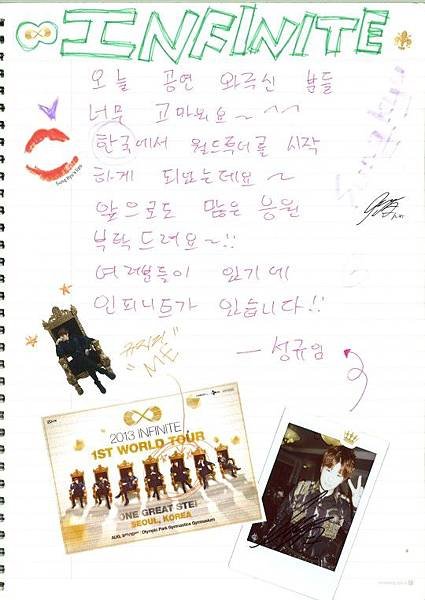 INFINITE
오늘 공연 와주신 분들
너무 고마워요~^^
한국에서 월드투어를 시작
하게 되었는데요~
앞으로도 많은 응원
부탁드려요~!!
여러분들이 있기에
인피니트가 있습니다!!
"ME"
- 성규임
2013 INFINITE
1ST WORLD TOUR
ONE GREAT STEP
SEOUL, KOREA
Olympic Park Gymnastics Gymnasium